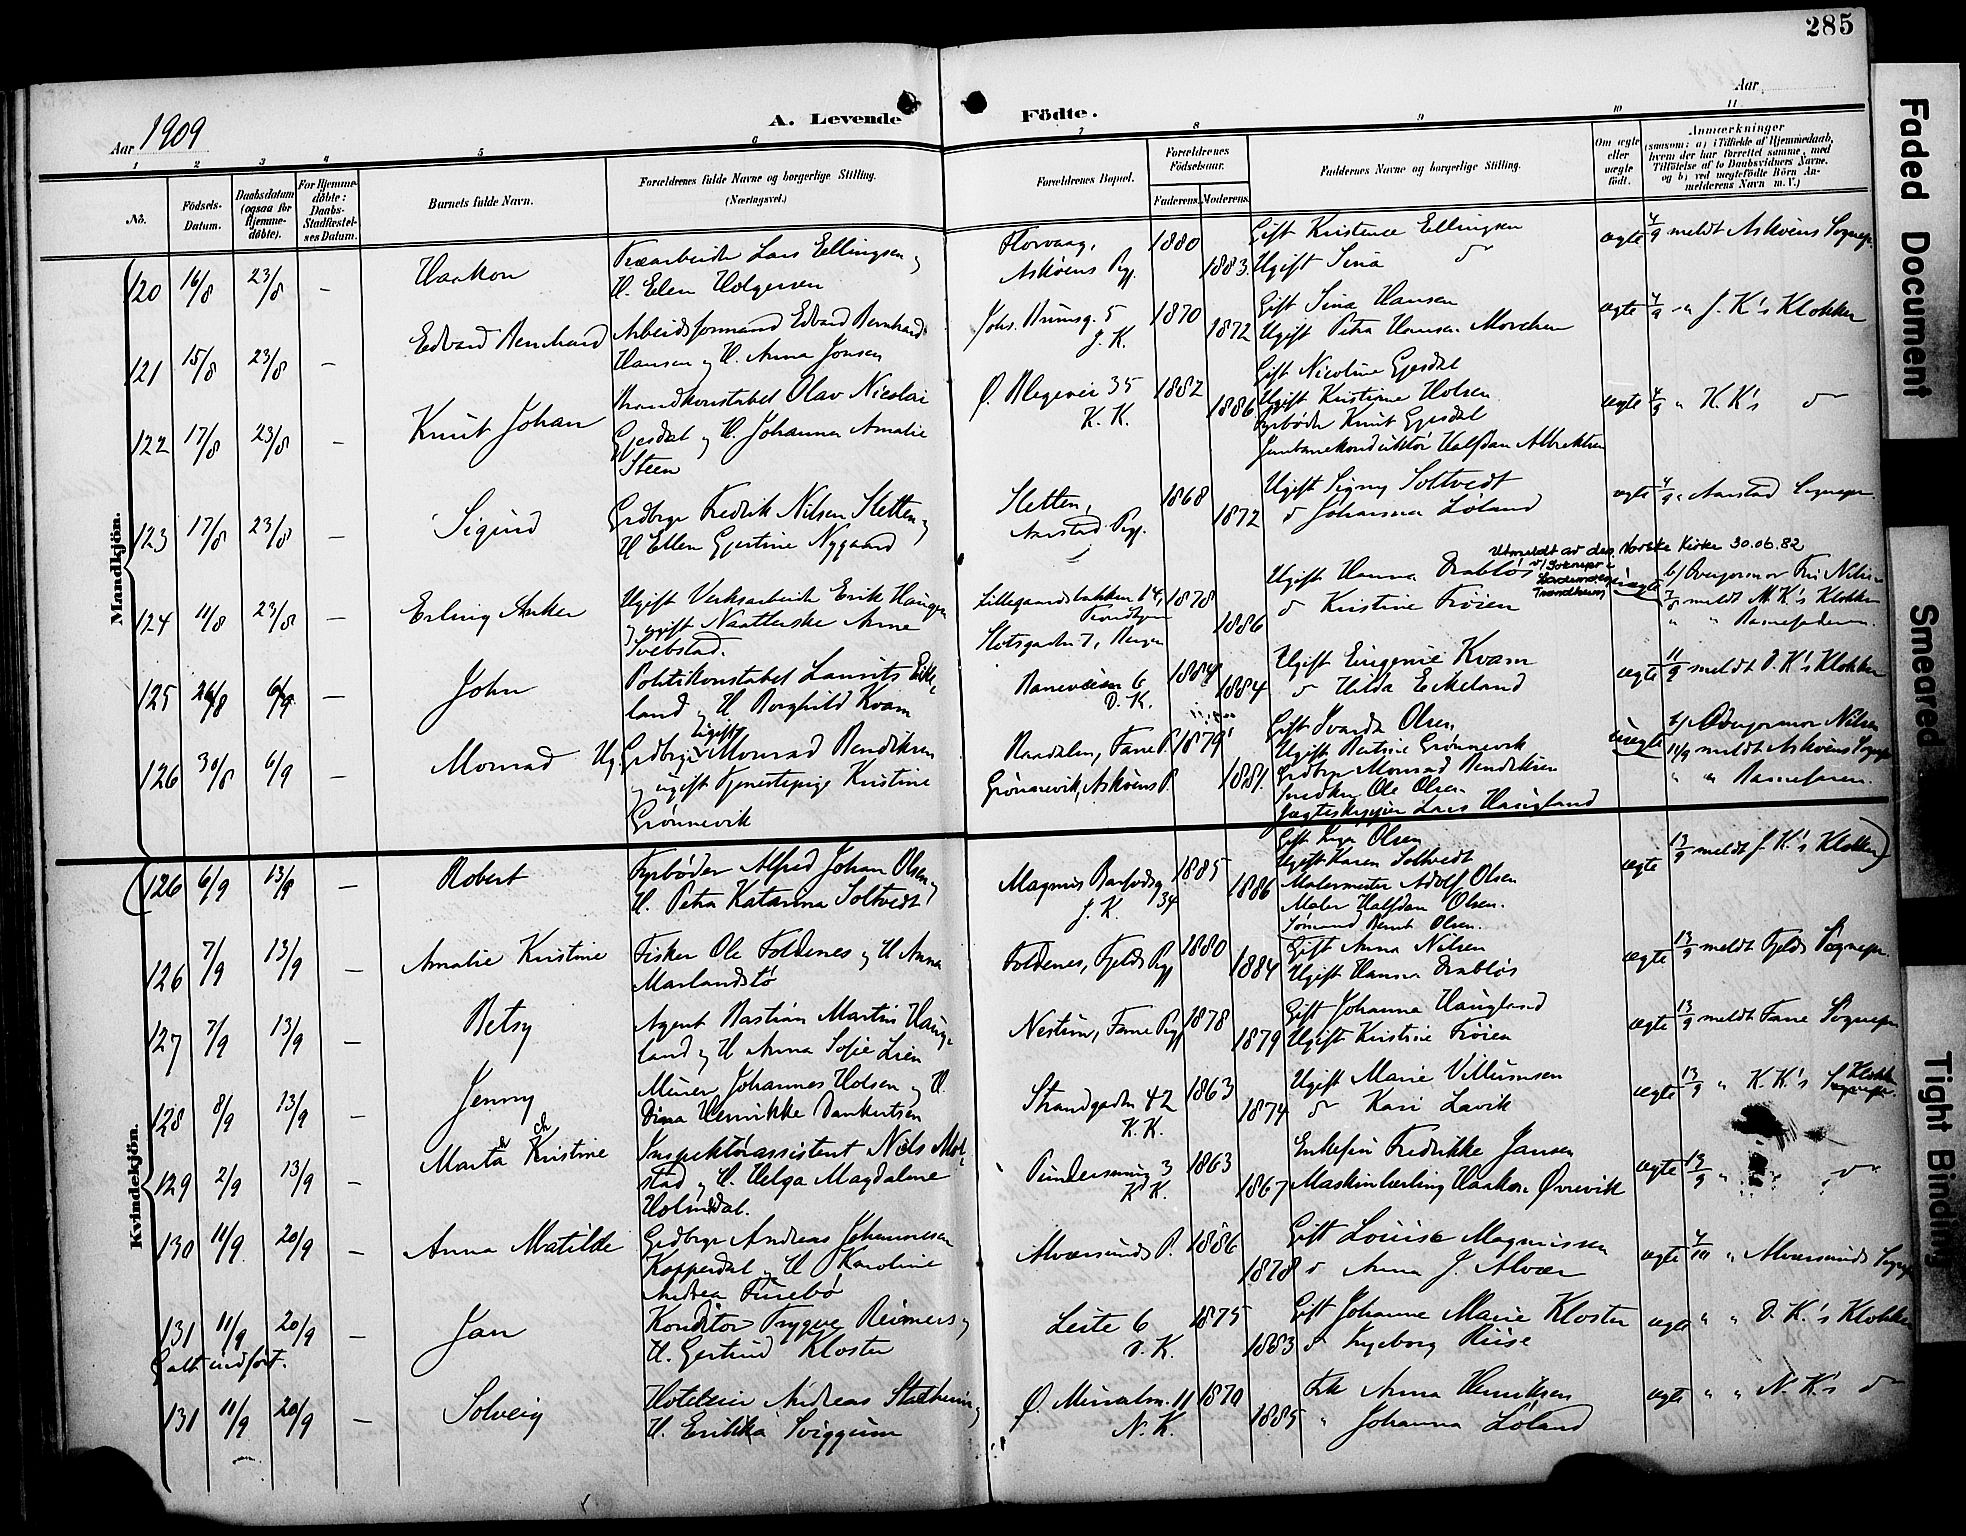 285
Aar 1909
A. Levende Födte.
Aar
1 2 3 4 5 6 7 8 9 10 11
No.
Födsels-Datum.
Daabsdatum (ogsaa for Hjemme-döbte).
For Hjemme-döbte: Daabs-Stadfæstel-ses Datum.
Barnets fulde Navn.
Forældrenes fulde Navne og borgerlige Stilling.
(Næringsvei.)
Forældrenes Bopæl.
Forældrenes Födselsaar.
Faderens. Moderens.
Faddernes Navne og borgerlige Stilling.
Om ægte eller uægte födt.
Anmærkninger
(saasom: a) i Tilfælde af Hjemmedaab,
hvem der har forrettet samme, med
Tilföielse af to Daabsvidners Navne.
og b) ved uægtefödte Börn An-
melderens Navn m. V.)
Mandkjön.
120 16/8 23/8 — Haakon
Træarbeider Lars Ellingsen og
H. Elen Holgersen
Florvaag,
Askøens Pgj.
1880 1883
Gift Kristence Ellingsen
Ugift Sina do
ægte 4/9 meldt Askøens Sognepr.
121 15/8 23/8 — Edvard Bernhard
Arbeidsformand Edvard Bernhard
Hansen og H. Anna Jonsen
Johs. Brunsg. 5
J. K.
1870 1872
Gift Sina Hansen
Ugift Petra Hansen Morchen
ægte 4/9 " J. K's Klokker
122 17/8 23/8 — Knut Johan
Brandkonstabel Olav Nicolai
Gjesdal og H. Johanna Amalie
Steen
Ø. Blegevei 35
K. K.
1882 1886
Gift Nicoline Gjesdal
Ugift Kristine Holsen
Fyrbøder Knut Gjesdal
Jernbanekonduktør Halfdan Albrektsen
ægte 4/9 " K. K's do
123 17/8 23/8 — Sigurd
Grdbrgr Fredrik Nilsen Sletten og
H Ellen Gjertine Nygaard
Sletten,
Aarstad Pgj.
1868 1872
Ugift Signy Soltvedt
do Johanna Løland
ægte 4/9 " Aarstad Sognepr.
Utmeldt av den Norske Kirke 30.06.82
v/Soknepr i
Lademoen
Trondheim
124 11/8 23/8 — Erling Anker
Ugift Verksarbeider Erik Haugen
og ugift Naatterske Anne
Svebstad.
Lillegaardsbakken 14,
Trondhjem
Slotsgaden 7, Bergen
1878 1886
Ugift Hanna Drabløs
do Kristine Frøien
uægte b/ Overjormor Fru Nilsen
7/9 meldt M. K's Klokker
" " Barnefaderen.
125 26/8 6/9 — John
Politikonstabel Laurits Eike-
land og H Borghild Kvam
Baneveien 6
D. K.
1884 1884
Ugift Eugenie Kvam
do Hilda Eikeland
ægte 11/9 meldt D. K's Klokker
126 30/8 6/9 — Monrad
Ug. Grdbrgr Monrad Bendiksen
og ugift Tjenestepige Kristine
Grønnevik
Raadalen, Fane P.
Grønnevik, Askøens P.
1879 1881
Gift Svarda Olsen
Ugift Bertine Grønnevik
Grdbrgr Monrad Bendiksen
Snedker Ole Olsen
Jægteskipper Lars Haugland
uægte b/ Overjormor Nilsen
11/9 meldt Askøens Sognepr
" " Barnefaren.
Kvindekjön.
(126 6/9 13/9 — Robert
Fyrbøder Alfred Johan Olsen og
H. Petra Katarina Soltvedt
Magnus Barfodsg. 34
J. K.
1885 1886
Gift Inga Olsen
Ugift Karen Soltvedt
Malermester Adolf Olsen
Maler Halfdan Olsen.
Sømand Bernt Olsen.
ægte 13/9 meldt J. K.'s Klokker)
126 7/9 13/9 — Amalie Kristine
Fisker Ole Foldenes og H Anna
Marlandstø
Foldenes, Fjelds Pgj
1880 1884
Gift Anna Nilsen
Ugift Hanna Drabløs
ægte 13/9 meldt Fjelds Sognepr.
127 7/9 13/9 — Betsy
Agent Bastian Martin Haug-
land og H Anna Sofie Lien
Nestun, Fane Pgj
1878 1879
Gift Johanna Haugland
Ugift Kristine Frøien
ægte 13/9 meldt Fane Sognepr
128 8/9 13/9 — Jenny
Murer Johannes Holsen og H.
Dina Henrikke Dankertsen
Strandgaden 42
K. K.
1863 1874
Ugift Marie Villumsen
do Kari Lavik
ægte 13/9 " K. K.'s Klokker
129 2/9 13/9 — Marta Kristine
Inspektørassistent Nils Mol-
stad og H. Helga Magdalene
Holmdal.
Pundersmug 3
K. K.
1863 1867
Enkefru Fredrikke Jansen
Maskinlærling Haakon Øvrevik
ægte 13/9 " do
130 11/9 20/9 — Anna Matilde
Grdbrgr Andreas Johannesen
Kopperdal og H Karoline
Andrea Furebø
Alversunds P.
1886 1878
Gift Louise Magnussen
do Anna J. Alver
ægte 4/10 " Alversunds Sognepr
131 11/9 20/9 — Jan
Galt indført.
Konditor Trygve Reimers og
H. Gertrud Kloster
Leite 6
D. K.
1875 1883
Gift Johanne Marie Kloster
do Ingeborg Riise
ægte " " D. K.'s Klokker
131 11/9 20/9 — Solveig
Hoteleier Andreas Stalheim og
H. Erikka Sviggum
Ø. Muralm. 11
N. K.
1870 1885
Frk Anna Henriksen
" Johanna Løland
ægte " " N. K.'s do
Faded Document
Smeared
Tight Binding